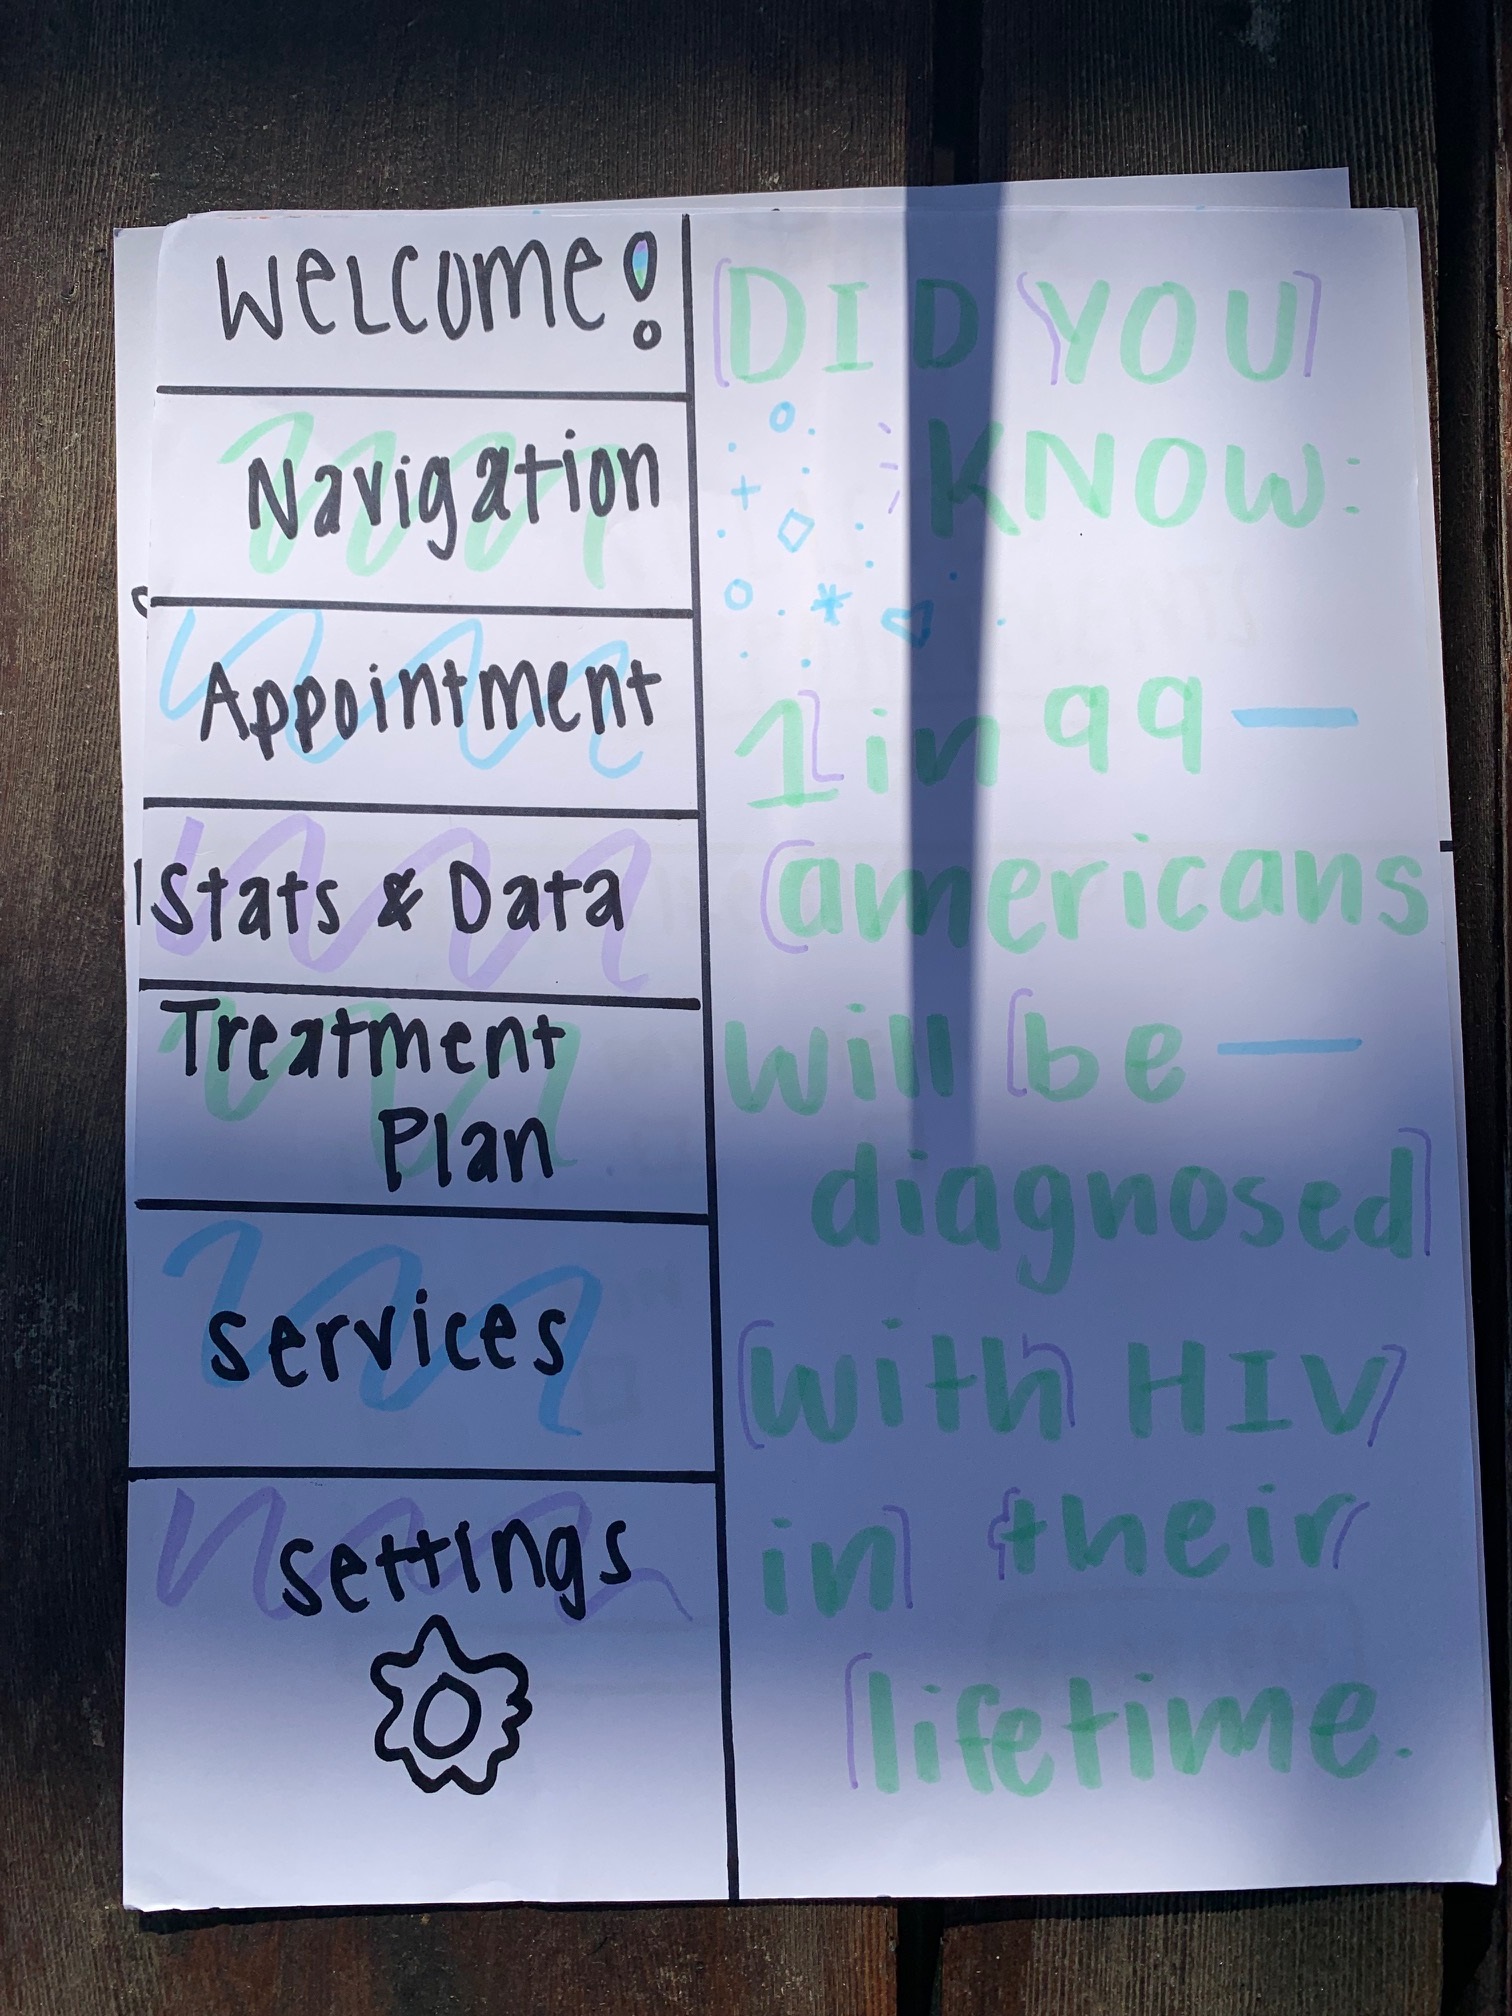 Welcome!
Navigation
Appointment
Stats & Data
Treatment
Plan
Services
Settings
DID YOU
KNOW:
1 in 99 —
americans
will be —
diagnosed
with HIV
in their
lifetime.